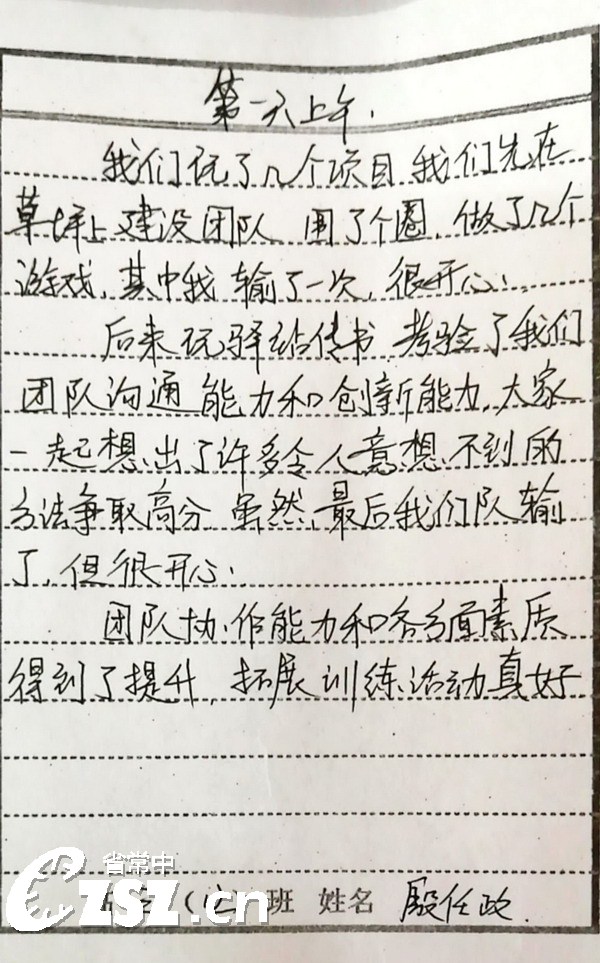 第一天上午.
我们玩了几个项目 我们先在
草坪上建设团队 围了个圈, 做了几个
游戏, 其中我输了一次, 很开心.
后来玩驿站传书 考验了我们
团队沟通能力和创新能力, 大家
一起想出了许多令人意想不到的
方法争取高分 虽然最后我们队输
了, 但很开心.
团队协作能力和各方面素质
得到了提升, 拓展训练活动真好
省常中
CZSZ.cn
班 姓名 殷任政